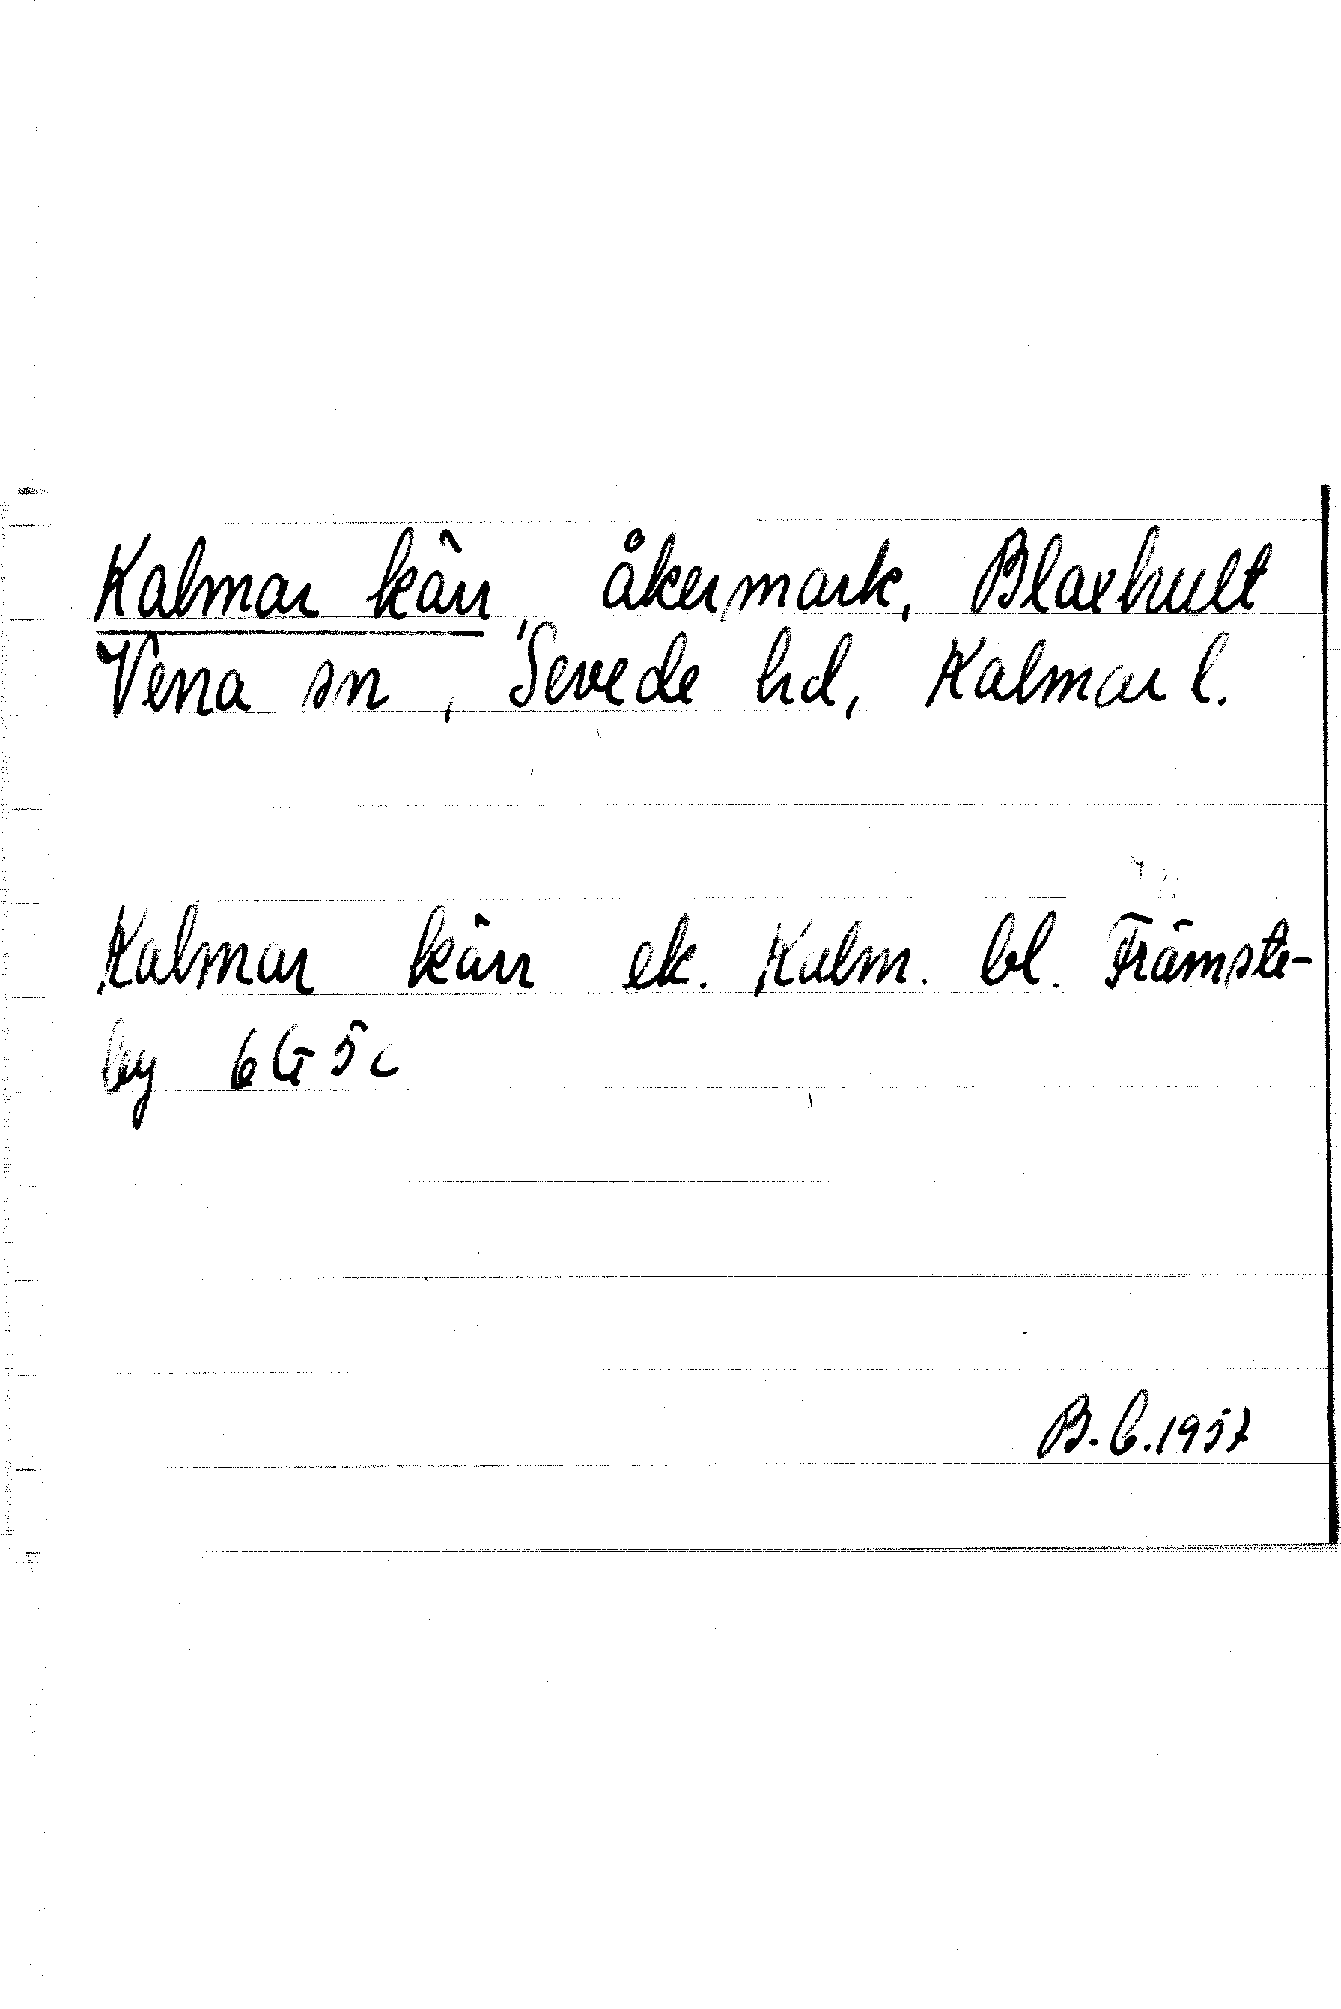 Kalmar kärr, åkermark, Blaxhult
Vena sn, Sevede hd, Kalmar l.
Kalmar kärr ek. Kalm. bl. Främste-
by 6G5c
B.C.1957